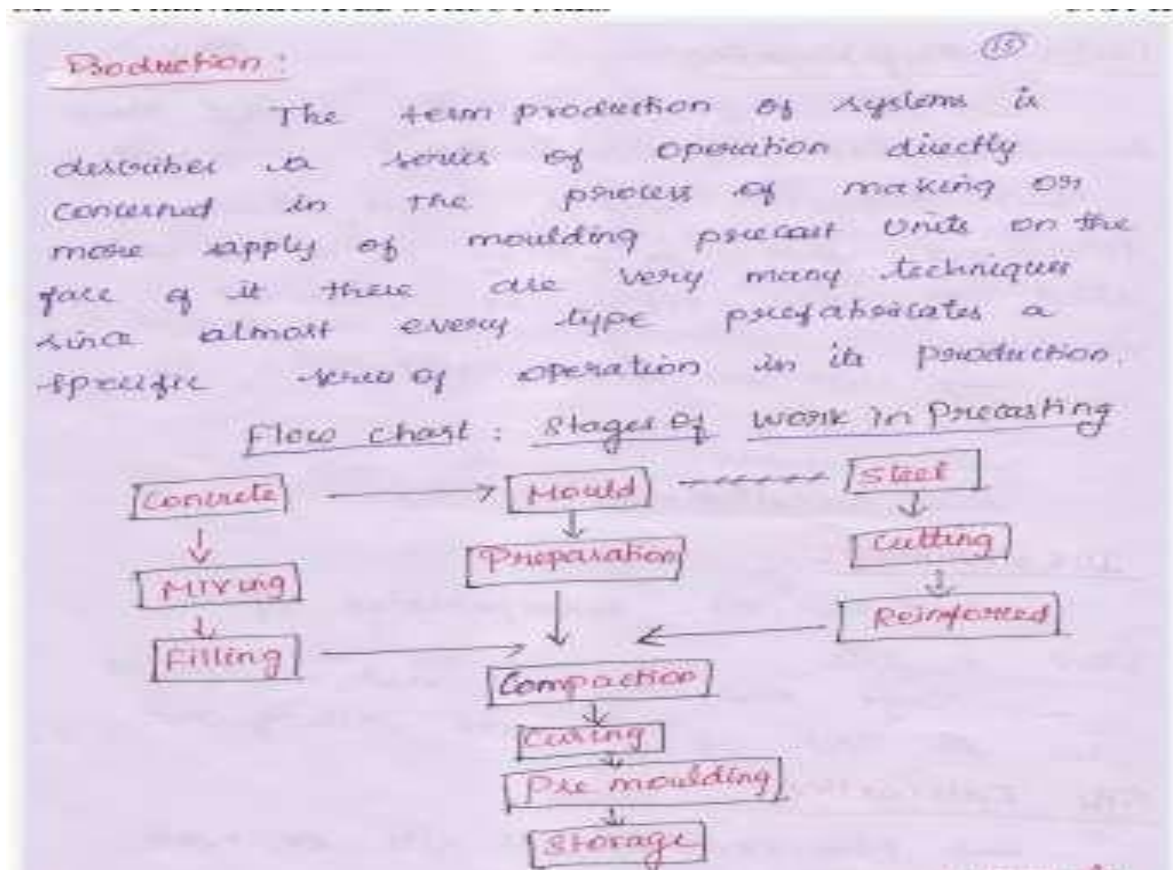 15
Production:
The term production of systems is
describes is series of operation directly
concerned in the process of making or
more apply of moulding precast units on the
face of it there are very many techniques
since almost every type prefabricates a
specific series of operation in its production.
Flow chart: Stages of work in Precasting
Concrete Mould Steel
Preparation Cutting
Mixing Reinforced
Filling
Compaction
Curing
Pre moulding
Storage